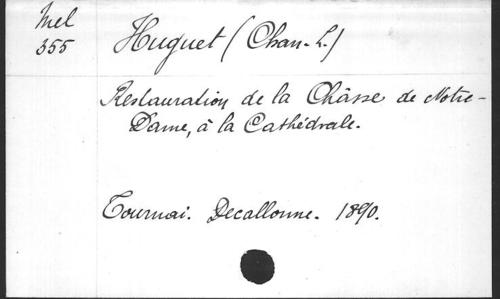 Mel
355
Huguet (Chan-L.)
Restauration de la Châsse de Notre-
Dame, à la Cathédrale.
Tournai. Decallonne. 1890.